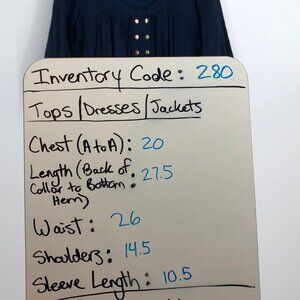 Inventory Code: 280
Tops/Dresses/Jackets
Chest (A to A): 20
Length (Back of
Collar to Bottom : 27.5
Hem)
Waist: 26
Shoulders: 14.5
Sleeve Length: 10.5